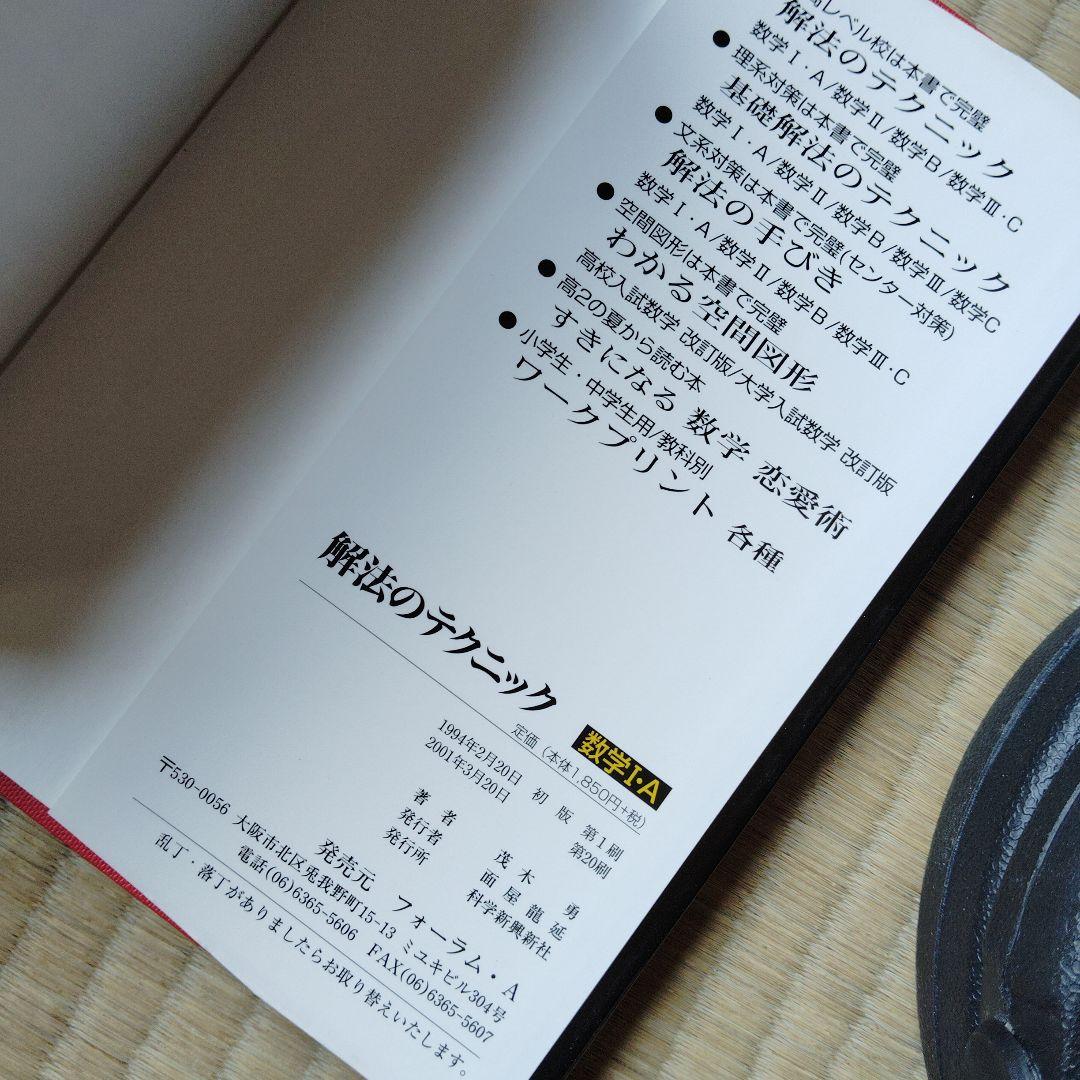 高レベル校は本書で完璧
解法のテクニック
数学Ⅰ・A/数学Ⅱ/数学B/数学Ⅲ・C
● 理系対策は本書で完璧
基礎解法のテクニック
数学Ⅰ・A/数学Ⅱ/数学B/数学Ⅲ/数学C
● 文系対策は本書で完璧(センター対策)
解法の手びき
数学Ⅰ・A/数学Ⅱ/数学B/数学Ⅲ・C
● 空間図形は本書で完璧
わかる空間図形
高校入試数学 改訂版/大学入試数学 改訂版
● 高2の夏から読む本
すきになる 数学 恋愛術
● 小学生・中学生用/教科別
ワークプリント 各種
解法のテクニック 数学Ⅰ・A
定価 (本体1,850円+税)
1994年2月20日 初 版 第1刷
2001年3月20日 第20刷
著 者 茂木 勇
発行者 面屋 龍延
発行所 科学新興新社
発売元 フォーラム・A
〒530-0056 大阪市北区兎我野町15-13 ミユキビル304号
電話(06)6365-5606 FAX(06)6365-5607
乱丁・落丁がありましたらお取り替えいたします。